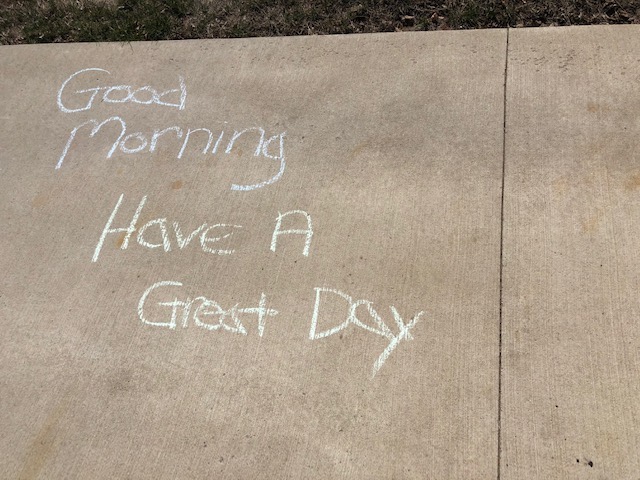 Good
Morning
Have A
Great Day